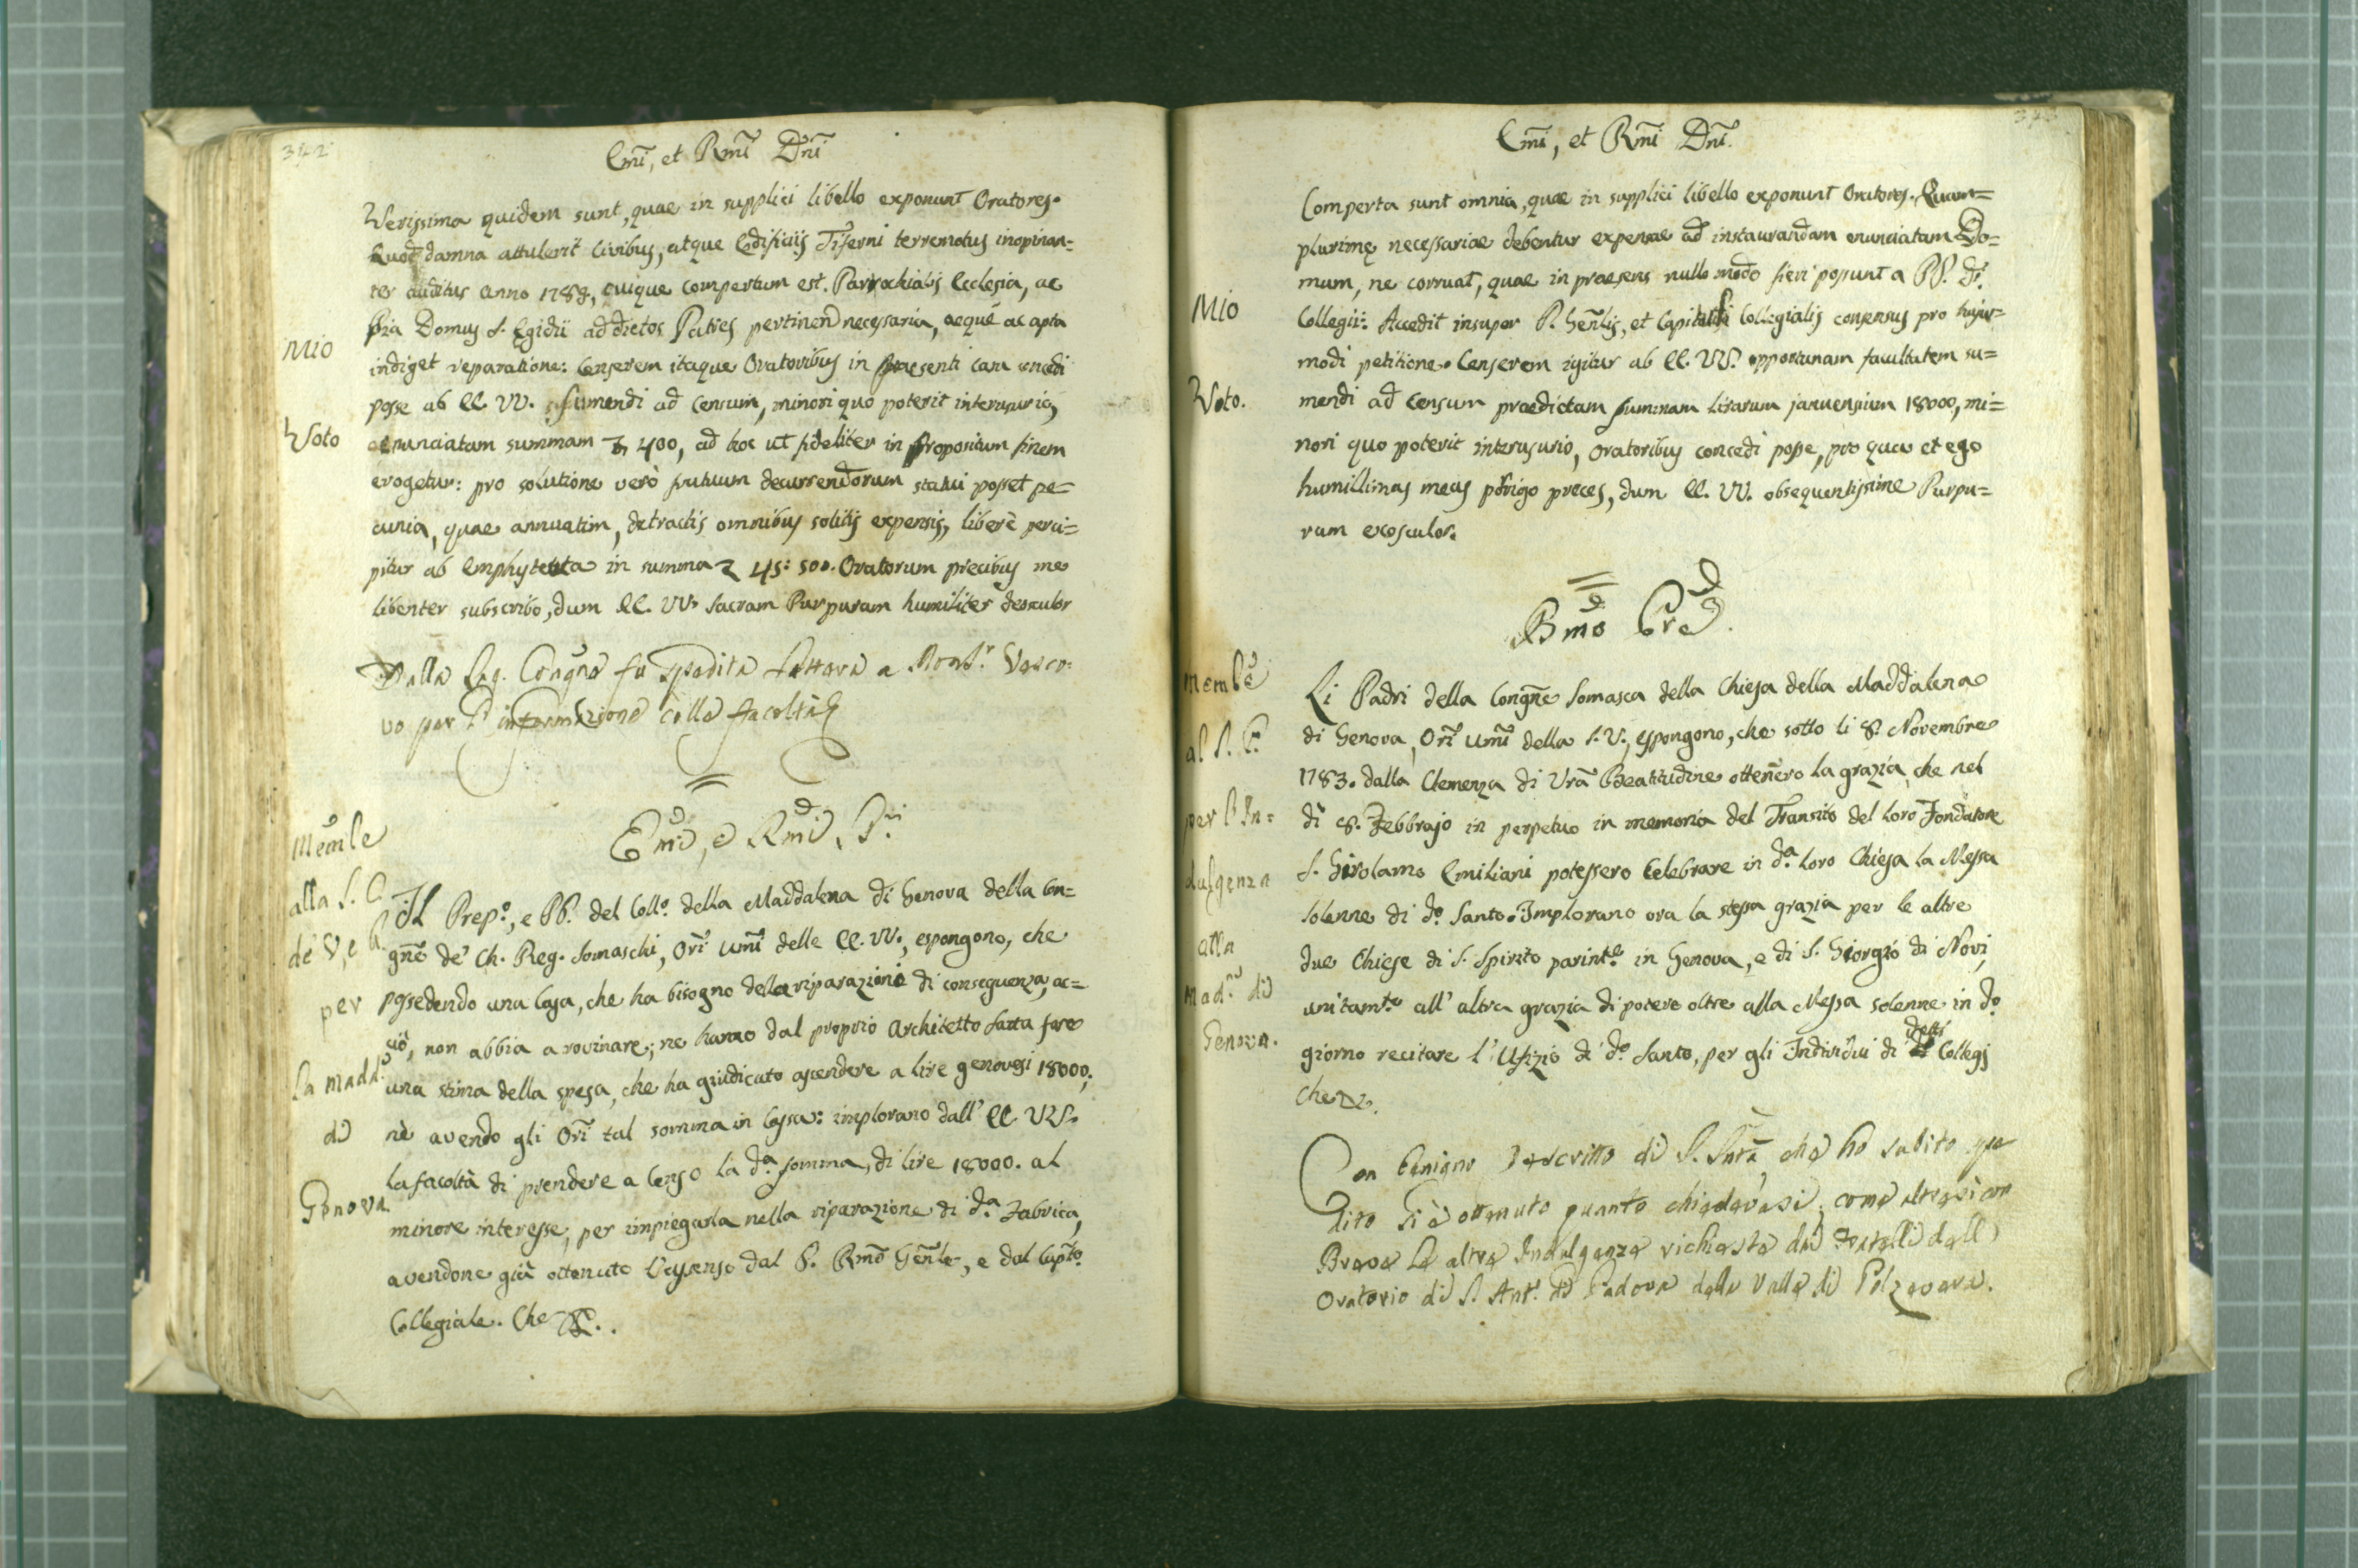 342
Emi, et Rmi Dni
Verissima quidem sunt, quae in supplici libello exponunt Oratores.
Quod damna attulerit Civibus, atque Edificiis Tiferni terremotus inopinan=
ter auditus anno 1789, cuique compertum est. Parrochialis Ecclesia, ac
pia Domus S. Egidii ad dictos Patres pertinen necessaria, aeque ac apta
Mio
indiget reparatione: Censerem itaque Oratoribus in praesenti casu concedi
posse ab EE. VV. sumendi ad Censum, minori quo poterit interusurio,
Voto
enunciatam summam 400, ad hoc ut fideliter in propositum finem
erogetur: pro solutione verò fructuum decurrendorum statui posset pe=
cunia, quae annuatim, detractis omnibus solitis expensis, liberè perci=
pitur ab Emphyteuta in summa 45: 50. Oratorum precibus me
libenter subscribo, dum EE. VV. Sacram Purpuram humiliter desculor
Dalla Sag. Congne fu spedita lettera a Monsr. Vesco=
vo per l'informazione colle facoltà
Emi, e Rmi Sri
Memle
alla S. C.
de' V, e R.
per
la Madda
di
Genova
Il Prepo., e PP. del Collo. della Maddalena di Genova della Con=
gne de' Ch. Reg. Somaschi, Ori umi delle EE. VV., espongono, che
possedendo una Casa, che ha bisogno delle riparazioni di conseguenza, ac=
ciò, non abbia a rovinare; ne hanno dal proprio Architetto fatta fare
una stima della spesa, che ha giudicato ascendere a lire genovesi 18000;
nè avendo gli Ori tal somma in Cassa: implorano dall' EE. VV.
la facoltà di prendere a Censo la da. somma, di lire 18000. al
minore interesse, per impiegarla nella riparazione di da. Fabrica,
avendone già ottenuto l'assenso dal P. Rmo Genle, e dal Capto.
Collegiale. Che &.
343
Emi, et Rmi Dni.
Comperta sunt omnia, quae in supplici libello exponunt Oratores. Quam=
plurimę necessariae debentur expensae ad instaurandam enunciatam Do=
mum, ne corruat, quae in praesens nullo modo fieri possunt a PP. di.
Mio
Collegii. Accedit insuper P. Genlis, et Capituli Collegialis consensus pro hujus=
modi petitione. Censerem igitur ab EE. VV. opportunam facultatem su=
Voto.
mendi ad Censum praedictam summam lirarum januensium 18000, mi=
nori quo poterit interusurio, Oratoribus concedi posse, pro qua et ego
humillimas meas porrigo preces, dum EE. VV. obsequentissime Purpu=
ram exosculor.
Bmo Pre.
Memle
al S. P.
per l'In=
dulgenza
alla
Mada. di
Genova.
Li Padri della Congne Somasca della Chiesa della Maddalena
di Genova, Ori umi della S. V., espongono, che sotto li 8. Novembre
1783. dalla Clemenza di Vra Beatitudine ottenero la grazia, che nel
dì 8. Febbrajo in perpetuo in memoria del Transito del loro Fondatore
S. Girolamo Emiliani potessero Celebrare in da. loro Chiesa la Messa
solenne di do. Santo. Implorano ora la stessa grazia per le altre
due Chiese di S. Spirito parinte. in Genova, e di S. Giorgio di Novi,
unitamte. all' altra grazia di potere oltre alla Messa solenne in do.
giorno recitare l' Ufizio di do. Santo, per gli Individui di detti Collegj
Che &.
Con benigno Rescritto di S. Sntà, che ho subito spe
dito si è ottenuto quanto chiedevasi, come altresì con
Breve le altre Indulgenze richieste dai Fratelli dell'
Oratorio di S. Ant. di Padova della Valle di Polzevera.